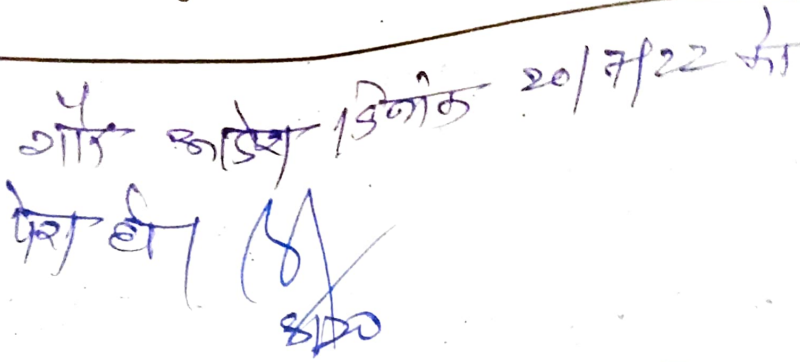 गौर आदेश दिनांक 20/7/22 को
पेश हो।
SDO